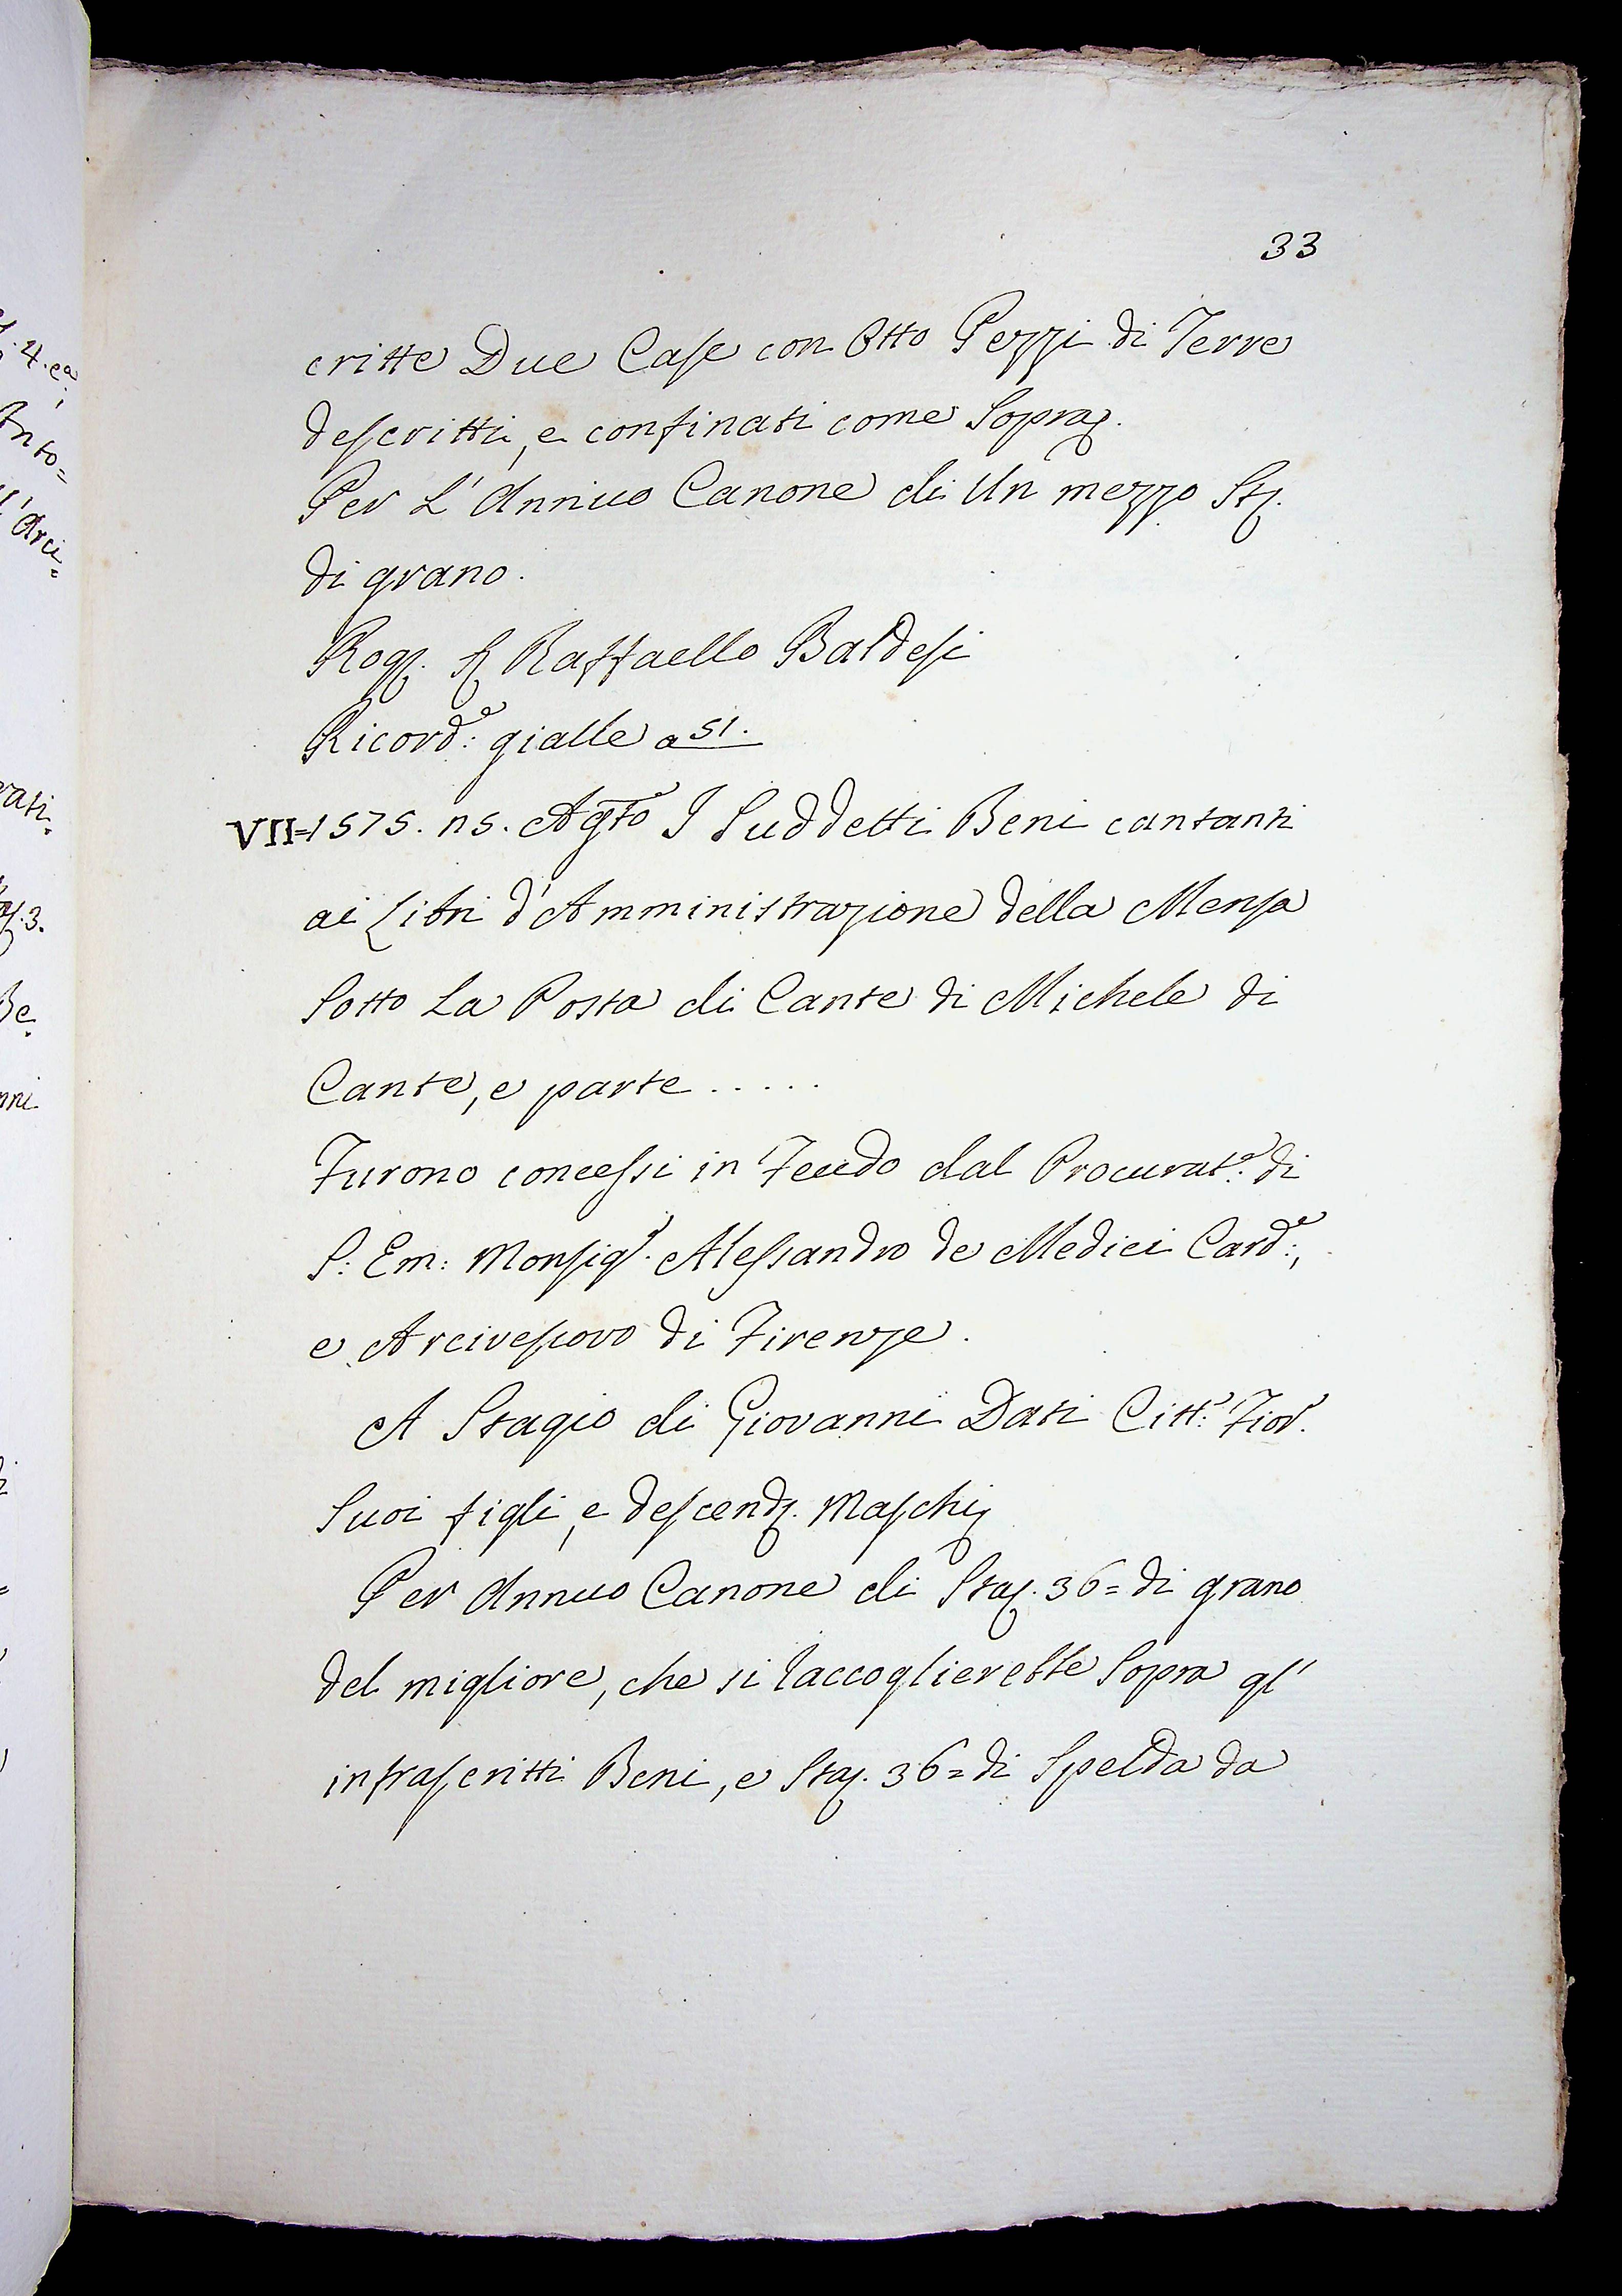 33
critte Due Case con Otto Pezzi di Terre
descritti, e confinati come Sopra.
Per L'Annuo Canone di Un mezzo St.
di grano.
Rog. Raffaello Baldesi
Ricord:e gialle a 51.
VII=1575. ns. Agto I Suddetti Beni cantanti
ai Libri d'Amministrazione della Mensa
Sotto La Posta di Cante di Michele di
Cante, e parte .....
Furono concessi in Feudo dal Procurat:e di
S: Em: Monsigr. Alessandro de Medici Card:e,
e Arcivescovo di Firenze.
A Stagio di Giovanni Dati Citt:o Fior.o
Suoi figli, e descend. Maschi
Per Annuo Canone di Sta. 36= di grano
del migliore, che si raccoglierebbe Sopra gl'
infrascritti Beni, e Sta. 36= di Spelda da
4. ea
Into=
Arci=
rati.
3.
Be.
nni